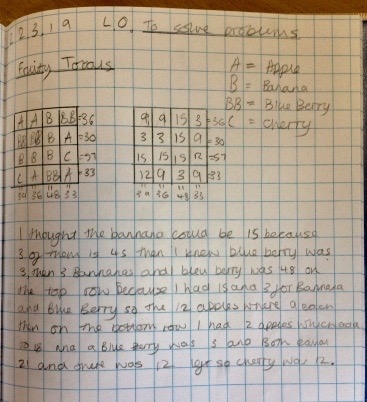 2.3.19 L.O. To solve problems
Fruity Totals
A = Apple
B = Banana
BB = Blue Berry
C = cherry
A A B BB =36
BB BB B A =30
B B B C =57
C A BB A =33
39 36 48 33
9 9 15 3 =36
3 3 15 9 =30
15 15 15 12 =57
12 9 3 9 =33
39 36 48 33
I thought the bannana could be 15 because
3 of them is 45 then I knew blue berry was
3, then 3 Bannanas and 1 bleu berry was 48 on
the top row because I had 15 and 3 for Bannana
and Blue Berry so the 12 apples where 9 each
then on the bottom row I had 2 apples which add
to 18 and a Blue Berry was 3 and Both equal
21 and there was 12 so cherry was 12.